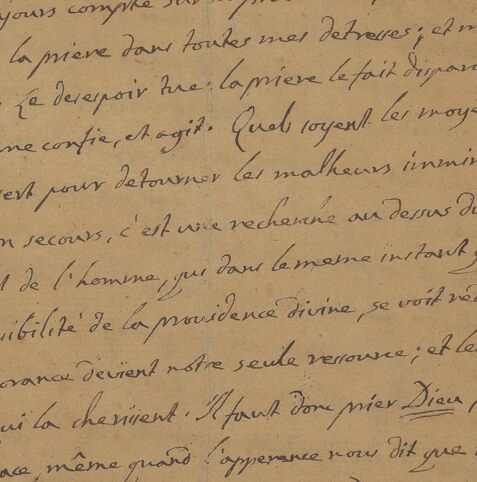 jours compté sur
la priere dans toutes mes detresses; et m
Le desespoir tue: la priere le fait dispar
me confie, et agit. Quels soyent les moye
sert pour detourner les malheurs immin
n secours, c'est une recherche au dessus d
l de l'homme, qui dans le meme instant q
sibilité de la providence divine, se voit re
orance devient notre seule ressource; et le
ui la cherissent. Il faut donc prier Dieu,
ace, même quand l'apperence nous dit que